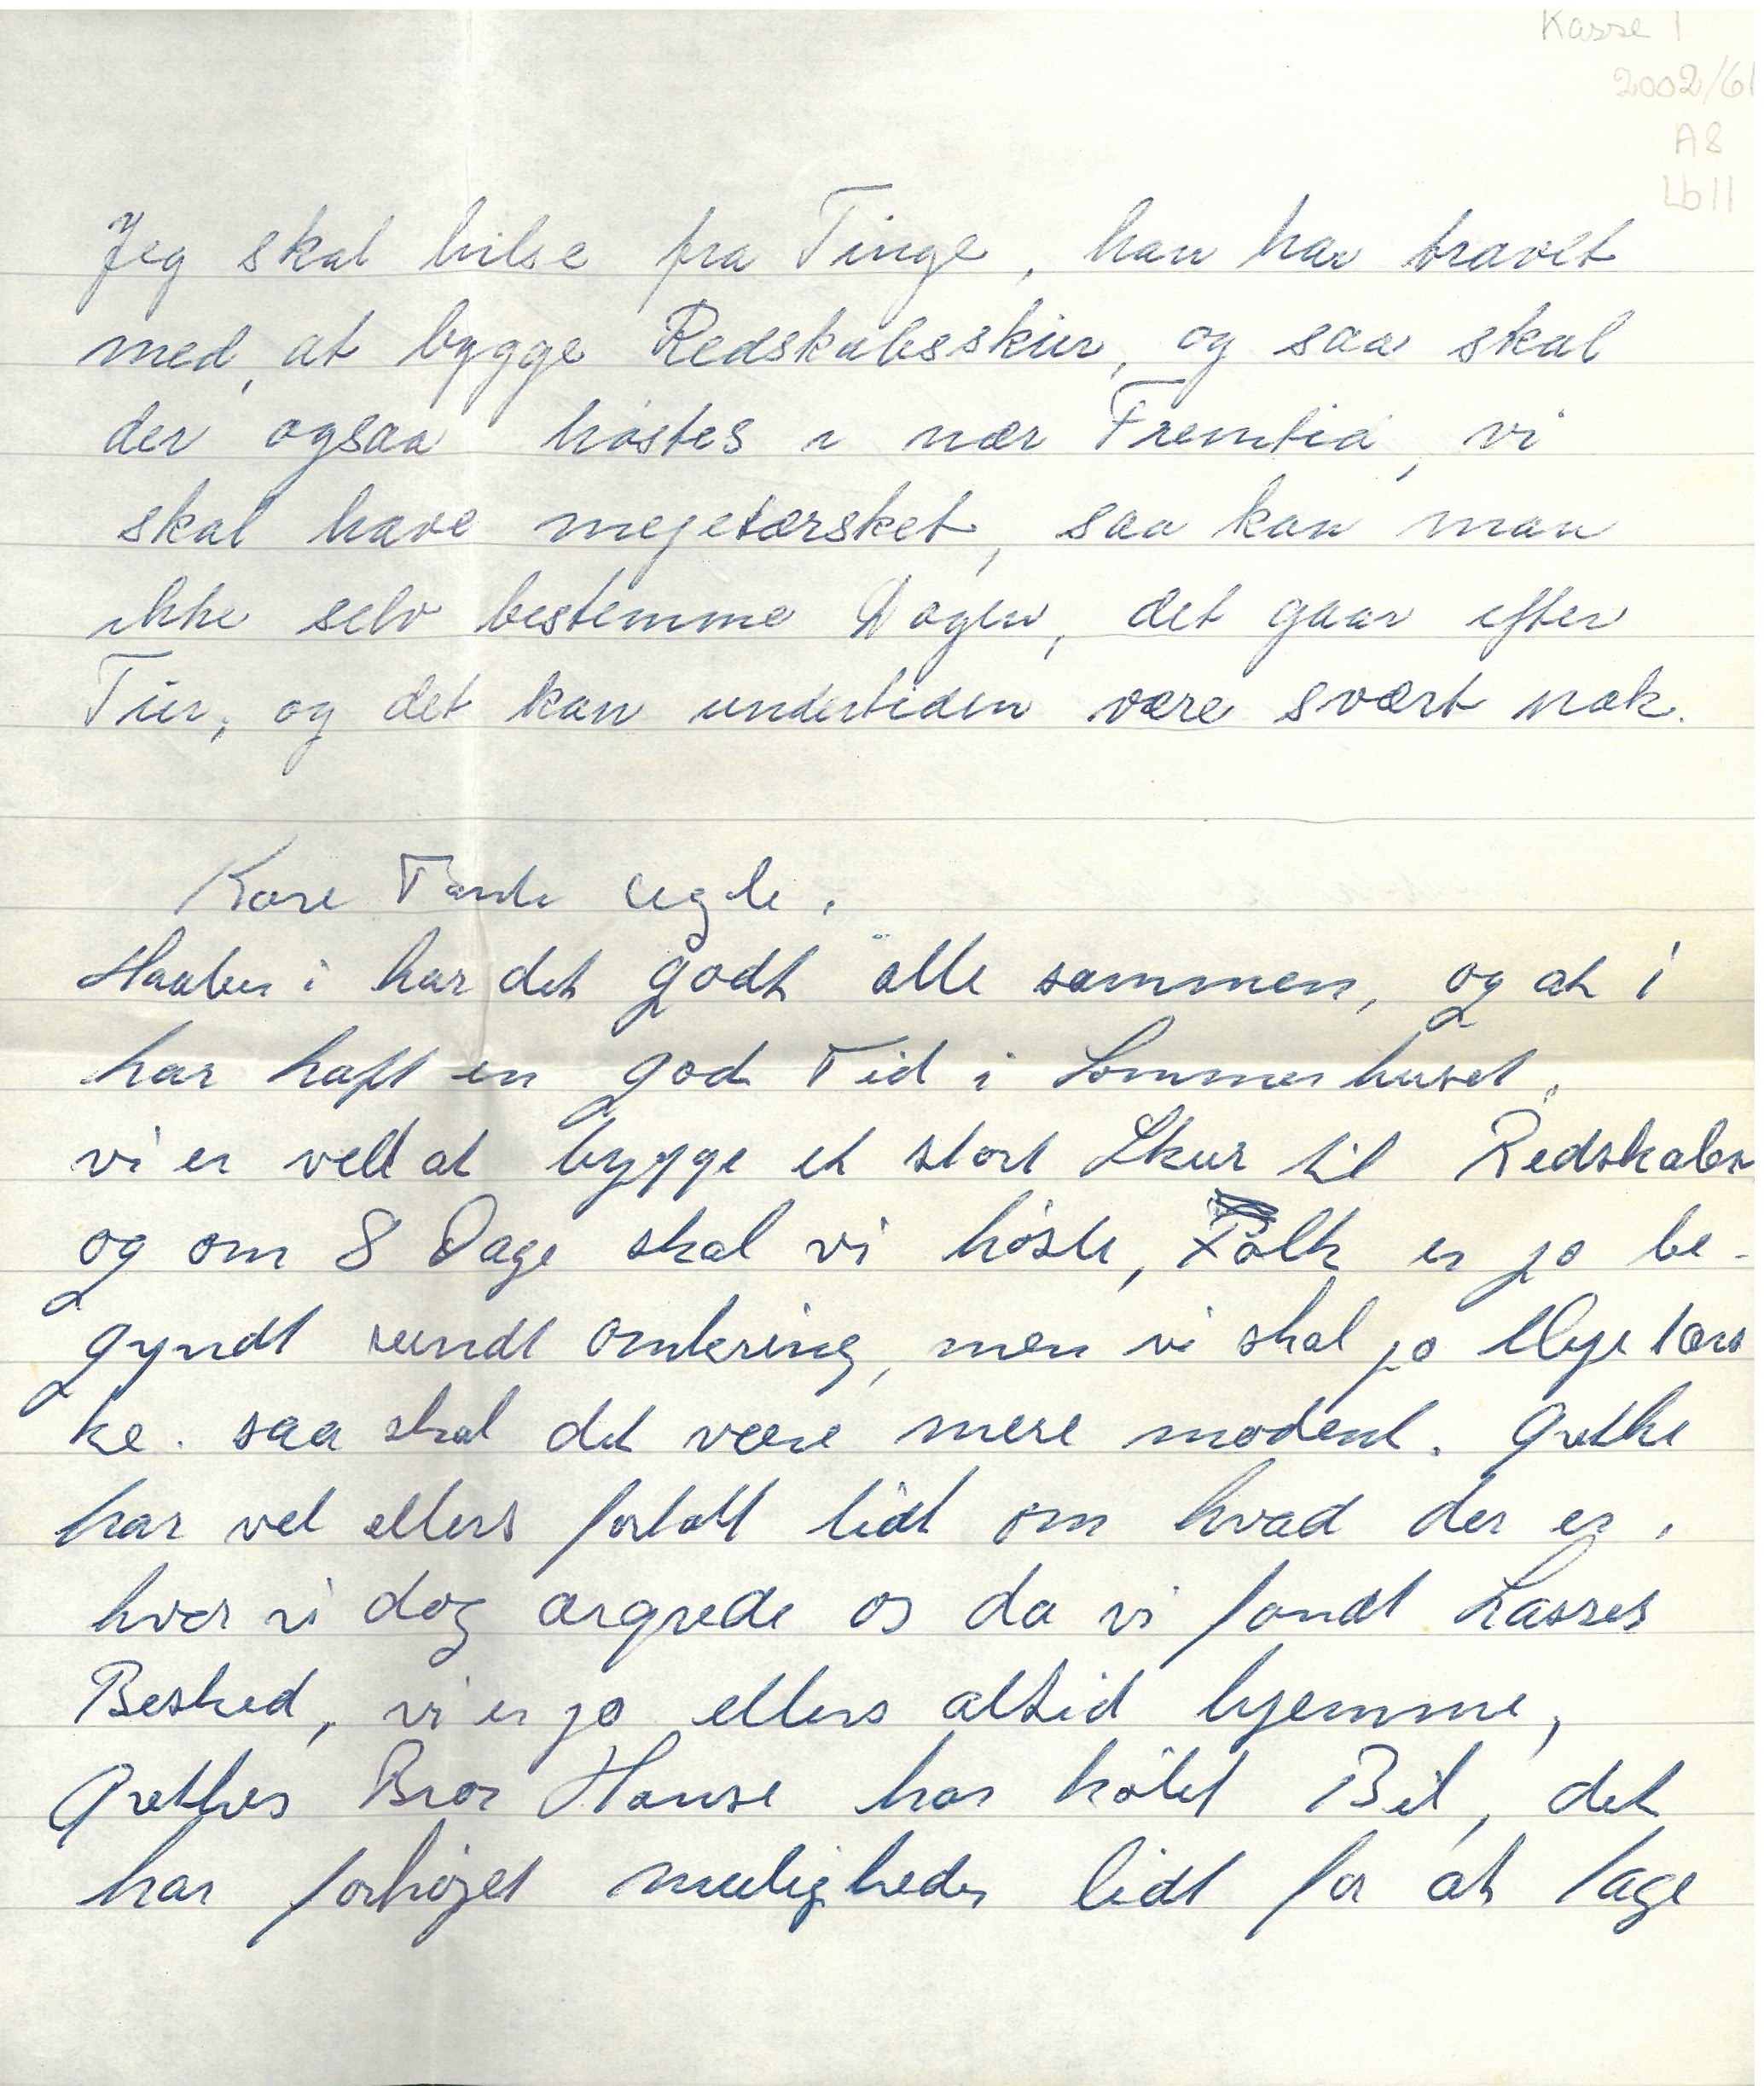 Kasse 1
2002/61
A8
Lb11
Jeg skal hilse fra Tinge, han har travlt
med, at bygge Redskabsskur, og saa skal
der ogsaa høstes i nær Fremtid, vi
skal have mejetærsket, saa kan man
ikke selv bestemme Dagen, det gaar efter
Tur, og det kan undertiden være svært nok.
Kære Tante Ugle.
Haaber i har det godt alle sammen, og at i
har haft en god Tid i Sommerhuset.
vi er ved at bygge et stort Skur til Redskaber
og om 8 Dage skal vi høste, Folk er jo be-
gyndt rundt omkring, men vi skal jo Meje tærs
ke. saa skal det være mere modent. Grethe
har vel ellers fortalt lidt om hvad der er.
hvor vi dog ærgrede os da vi fandt Lasses
Besked, vi er jo ellers altid hjemme,
Grethes Bror Hanse har købt Bil, det
har forhøjet muligheder lidt for at tage